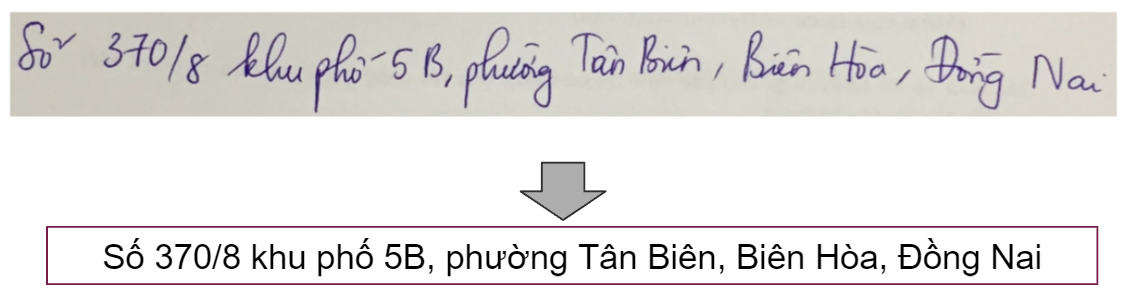 Số 370/8 khu phố 5B, phường Tân Biên, Biên Hòa, Đồng Nai
Số 370/8 khu phố 5B, phường Tân Biên, Biên Hòa, Đồng Nai